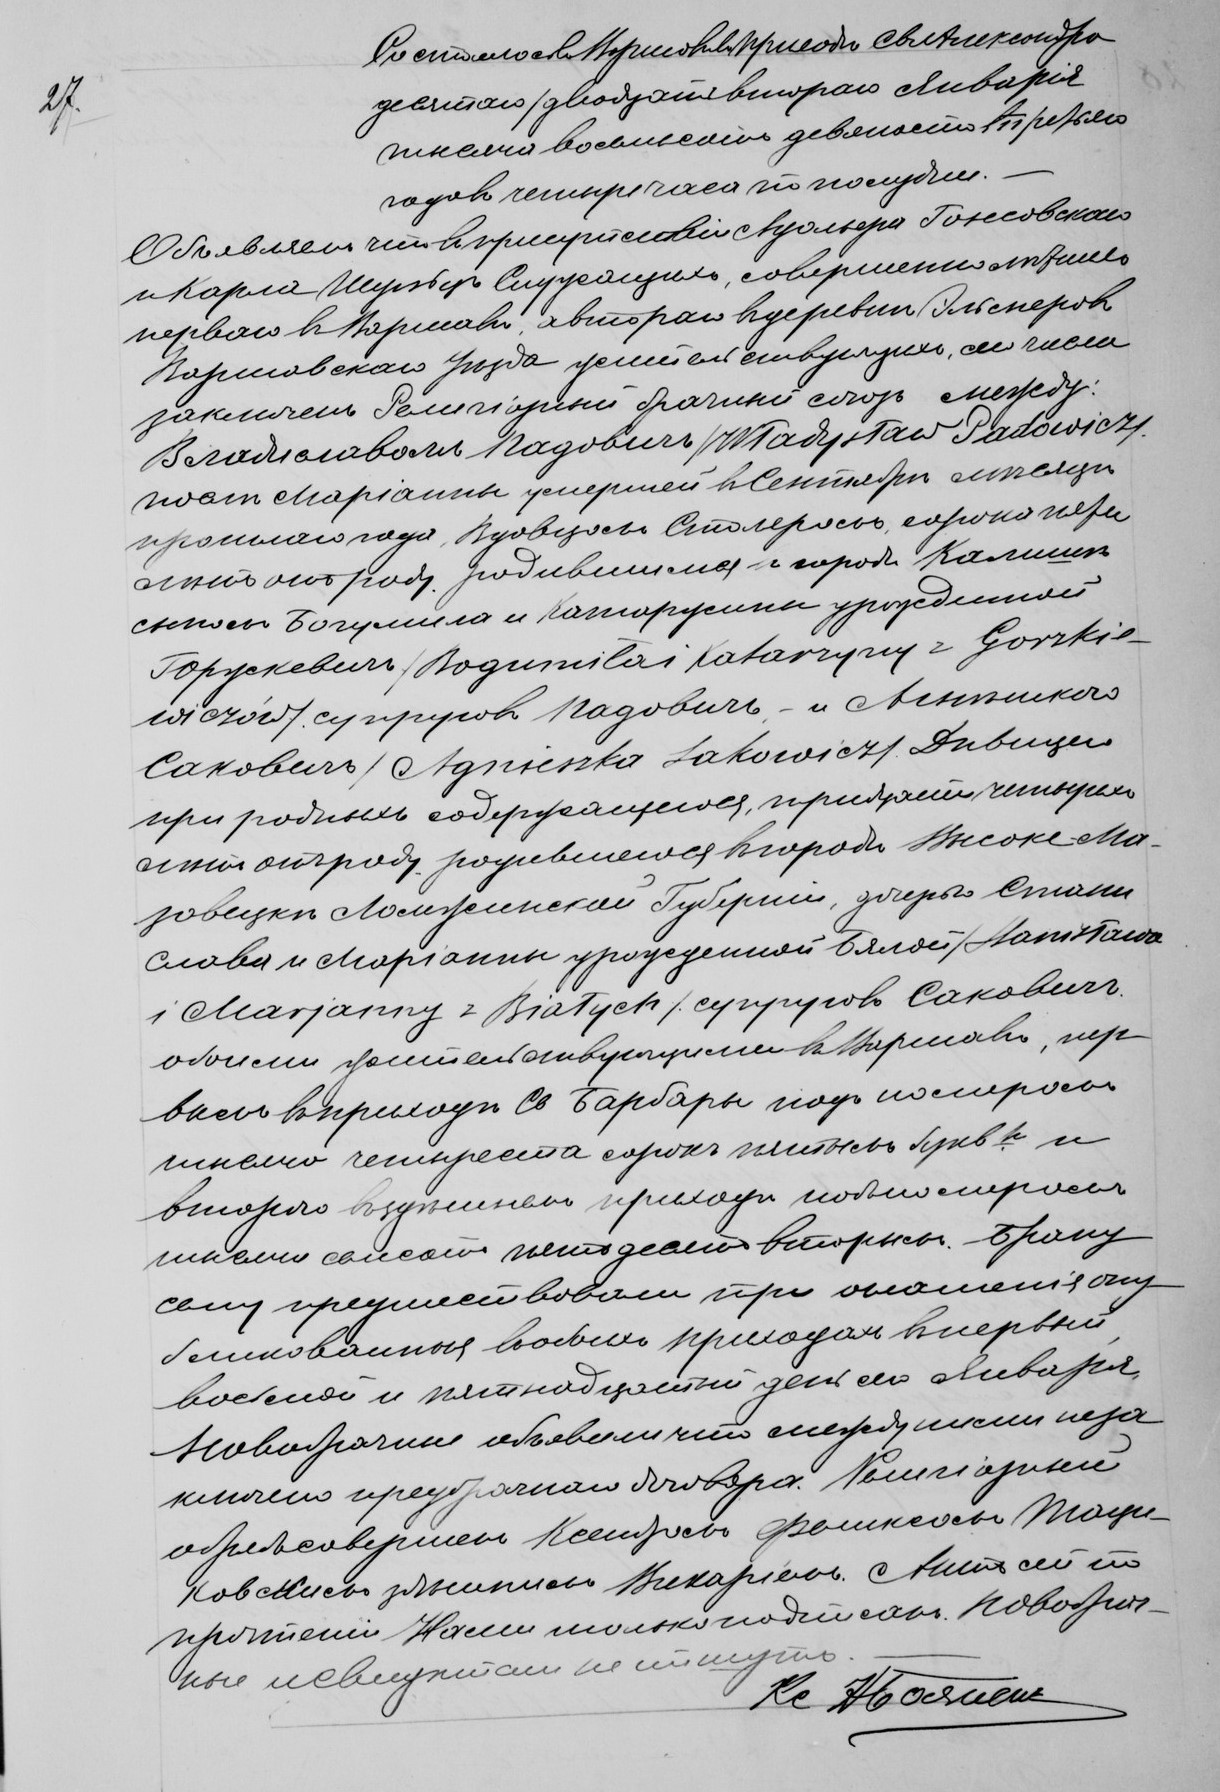 27.
Состоялось въ Варшавѣ въ приходѣ Св. Александра
десятаго/двадцать втораго Января
тысяча восемьсотъ девяносто третьяго
года въ четыре часа по полудни. —
Объявляемъ что въ присутствіи Адольфа Гонсовскаго
и Карла Служащихъ, совершеннолѣтнихъ
перваго въ Варшавѣ, а втораго въ деревни Эльснеровъ
Варшавскаго Уѣзда жительствующихъ, сего числа
заключенъ Религіозный брачный союзъ между:
Владиславомъ Падовичъ /Władysław Padowicz/.
после Маріанны умершей въ Сентябрѣ мѣсяцѣ
прошлаго года, Вдовцомъ Столяромъ, сорока пяти
лѣтъ отъ роду, родившимся въ городѣ Калишѣ
сыномъ Богумила и Катаржины урожденной
Горжкевичъ /Bogumiła i Katarzyny z Gorzkie-
wiczów/. супруговъ Падовичъ, – и Агнѣшкою
Саковичъ / Agnieszka Sakowicz/. Дѣвицею
при родныхъ содержащеюся, тридцати четырехъ
лѣтъ отъ роду, родившеюся въ городѣ Высоке-Ма-
зовецкѣ Ломжинской Губерніи, дочерью Стани
слава и Маріанны урожденной Бялой /Stanisława
i Marjanny z Białych /. супруговъ Саковичъ.
обоими жительствующими въ Варшавѣ, пер-
вымъ въ приходѣ Св Барбары подъ номеромъ
тысяча четыреста сорокъ пятымъ букв. и
вторая въ здѣшнемъ приходѣ подъ номеромъ
тысяча семьсотъ пятьдесятъ вторымъ. Браку
сему предшествовали три оглашенія опу
бликованныя въ обоихъ приходахъ въ первый,
восьмой и пятнадцатый день сего Января,
Новобрачные объявили что между ними неза
ключено предбрачнаго договора. Религіозный
обрядъ совершенъ Ксендзомъ Феликсомъ
ковскимъ здѣшнимъ Викаріемъ. Актъ сей по
прочтеніи Нами только подписанъ. Новобрач-
ные и Свидѣтели не пишутъ. —
Кс